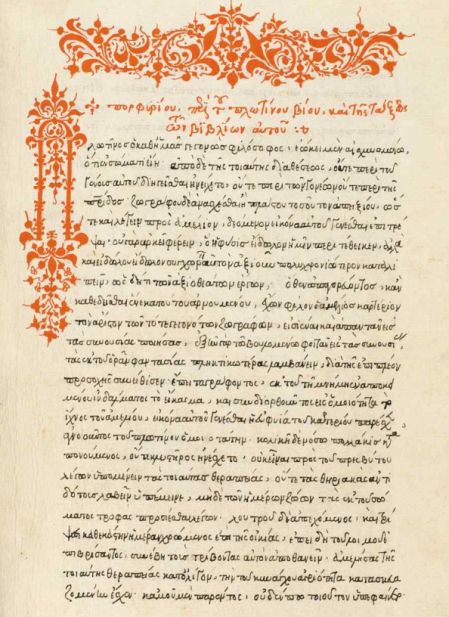 πορφυρίου περὶ τοῦ πλωτίνου βίου, καὶ τῆς τάξεως
τῶν βιβλίων αὐτοῦ :
Πλωτῖνος ὁ καθ' ἡμᾶς γεγονὼς φιλόσοφος, ἐῴκει μὲν αἰσχυνομένῳ,
ὅτι ἐν σώματι εἴη· ἀπὸ δὲ τῆς τοιαύτης διαθέσεως, οὔτε περὶ τοῦ
γένους αὐτοῦ διηγεῖσθαι ἠνείχετο, οὔτε περὶ τῶν γονέων οὔτε περὶ τῆς
πατρίδος· ζωγράφου δὲ ἀνασχέσθαι ἢ πλάστου τοσοῦτον ἀπηξίου, ὥσ
τε καὶ λέγειν πρὸς ἀμέλιον, δεόμενον εἰκόνα αὐτοῦ γενέσθαι ἐπιτρέ
ψαι· οὐ γὰρ ἀρκεῖ φέρειν, ὃ ἡ φύσις εἴδωλον ἡμῖν περιτέθεικεν, ἀλλὰ
καὶ εἰδώλου εἴδωλον συγχωρεῖν αὐτὸν ἀξιοῦν πολυχρονιώτερον καταλι
πεῖν, ὡς δή τι τῶν ἀξιοθεάτων ἔργων, ὅθεν ἀπαγορεύοντος, καὶ
καθεδεῖσθαι ἕνεκα τούτου ἀρνουμένου, ἔχων φίλον ὁ ἀμέλιος καρτέριον
τὸν ἄριστον τῶν τότε γεγονότων ζωγράφων, εἰσιέναι καὶ ἀπαντᾶν εἰς
τὰς συνουσίας ποιήσας, ἐξῆν γὰρ τῷ βουλομένῳ φοιτᾶν εἰς τὰς συνουσί
τὰς ἐκ τοῦ ὁρᾶν φαντασίας πληκτικωτέρας λαμβάνειν, διὰ τῆς ἐπὶ πλέον
προσοχῆς συνείθισεν· ἔπειτα γράφοντος, ἐκ τοῦ τῇ μνήμῃ ἐναποκει
μένου ἰνδάλματος τὸ εἴκασμα, καὶ συνδιορθοῦντος εἰς ὁμοιότητα τὸ
ἴχνος τοῦ ἀμελίου, εἰκόνα αὐτοῦ γενέσθαι ἡ εὐφυΐα τοῦ καρτερίου παρέσχεν
ἀγνοοῦντος τοῦ πλωτίνου ὁμοιοτάτην· κοιλιακῇ δὲ νόσῳ πολλάκις κατα
πονούμενος, οὔτε κλυστῆρος ἠνέσχετο· οὐκ εἶναι πρὸς τοῦ πρεσβύτου
λέγων ὑπομένειν τὰς τοιαύτας θεραπείας, οὔτε τὰς θηριακὰς ἀντι
δότους λαβεῖν ὑπέμεινε, μηδὲ τῶν ἡμέρων ζώων τὰς ἐκ τοῦ σώ
ματος τροφὰς προσίεσθαι λέγων· λουτροῦ δὲ ἀπεχόμενος, καὶ τρί
ψεσι καθ' ἑκάστην ἡμέραν χρώμενος ἐπὶ τῆς οἰκίας, ἐπειδὴ τοῦ λοιμοῦ
ἐπιβρίσαντος, συνέβη τοὺς τρίβοντας αὐτὸν ἀποθανεῖν, ἀμελήσας τῆς
τοιαύτης θεραπείας κατ' ὀλίγον, τὴν τοῦ κυνάγχου ἀγριότητα κατασκευα
ζομένην ἔσχεν· κἀμοῦ μὲν παρόντος, οὐδέν πω τοιοῦτον ὑπεφαίνετο·